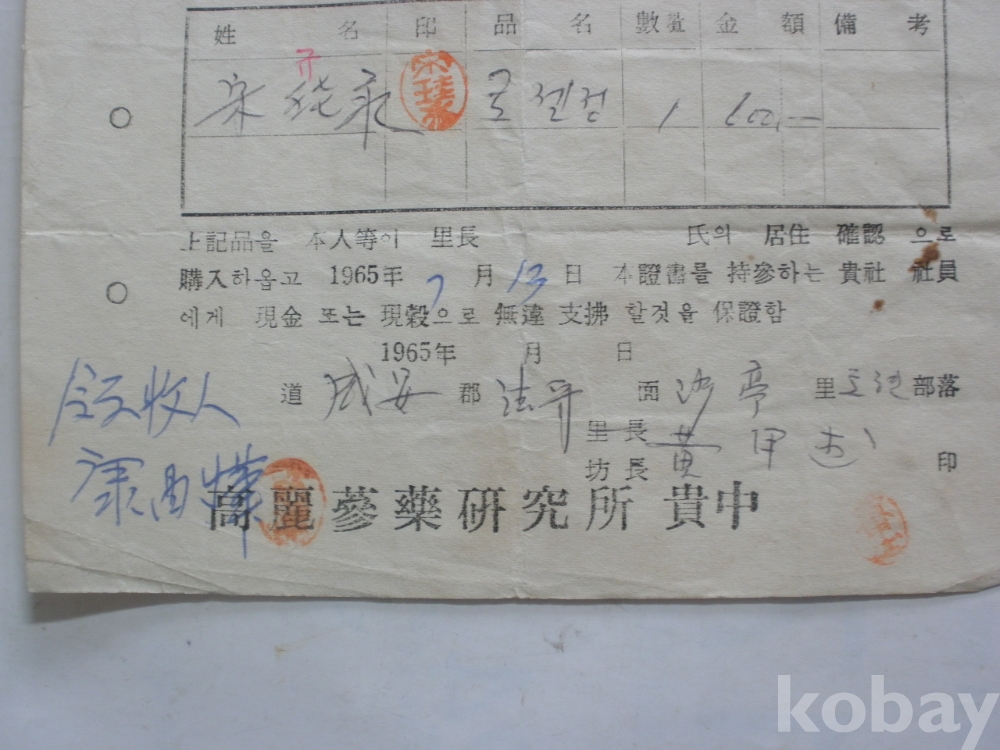 姓名 印 品名 數量 金額 備考
규
宋 永 로젤정 1 600,—
上記品을 本人等이 里長 氏의 居住 確認 으로
購入하옵고 1965年 7 月 13 日 本證書를 持參하는 貴社 社員
에게 現金 또는 現穀으로 無違 支拂 할것을 保證함
1965年 月 日
領收人 道 咸安 郡 法守 面 沙亭 里 部落
里長 黃甲
坊長 印
康昌
高麗蔘藥硏究所 貴中
kobay